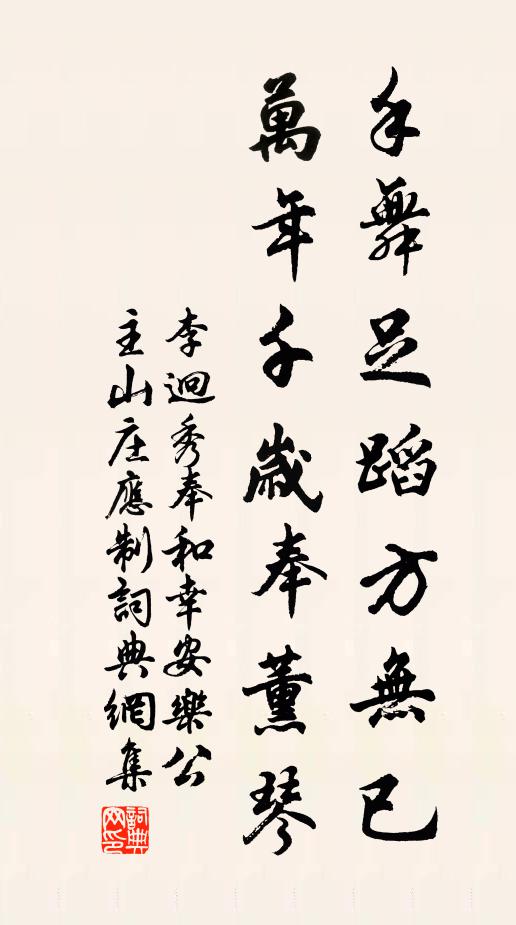 手舞足蹈方無已
萬年千歲奉薰琴
李迥秀奉和幸安樂公
主山庄應制詞典網集
詞典網印